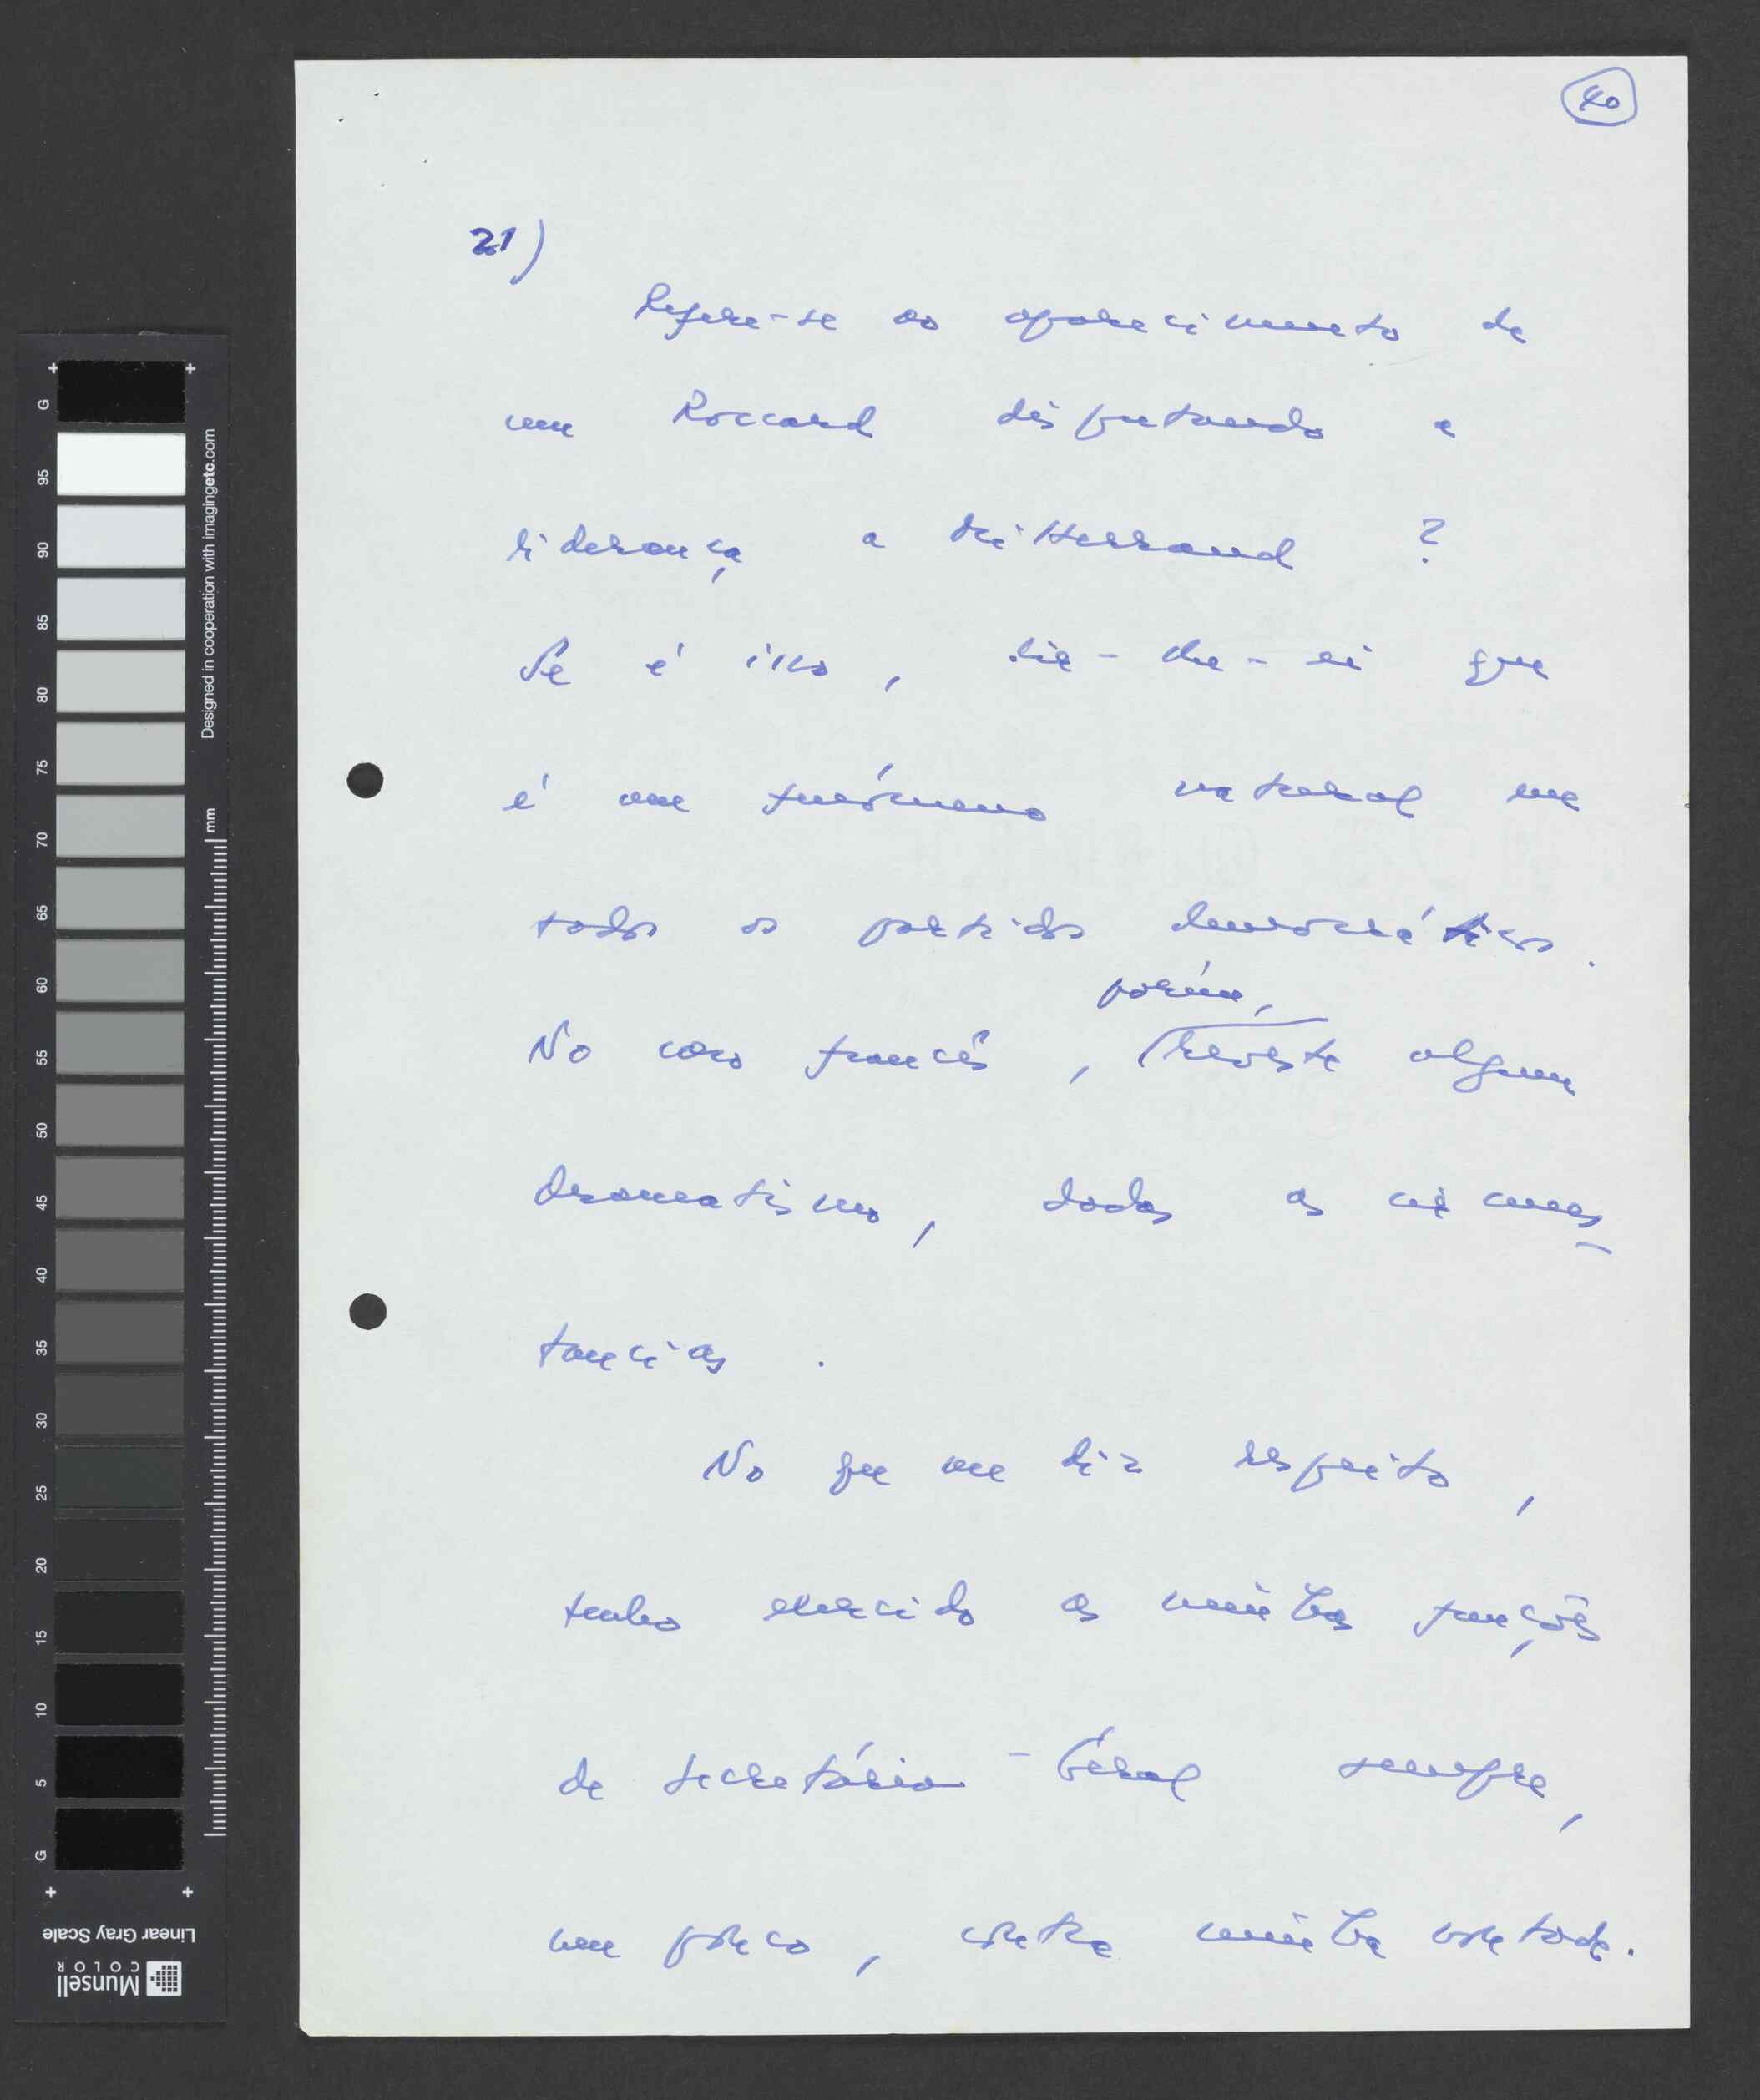 40
21)
Refere-se ao aparecimento de
um Roccard disputando a
liderança a Mitterrand ?
Se é isso, dir-lhe-ei que
é um fenómeno natural em
todos os partidos democráticos.
porém,
No caso francês, reveste algum
dramatismo, dadas as circuns-
tancias.
No que me diz respeito,
tenho exercido as minhas funções
de secretário-Geral sempre,
um pouco, contra minha vontade.
G
95
90
85
80
75
70
65
60
55
50
45
40
35
30
25
20
15
10
5
G
mm
Designed in cooperation with imagingetc.com
Linear Gray Scale
Munsell
COLOR